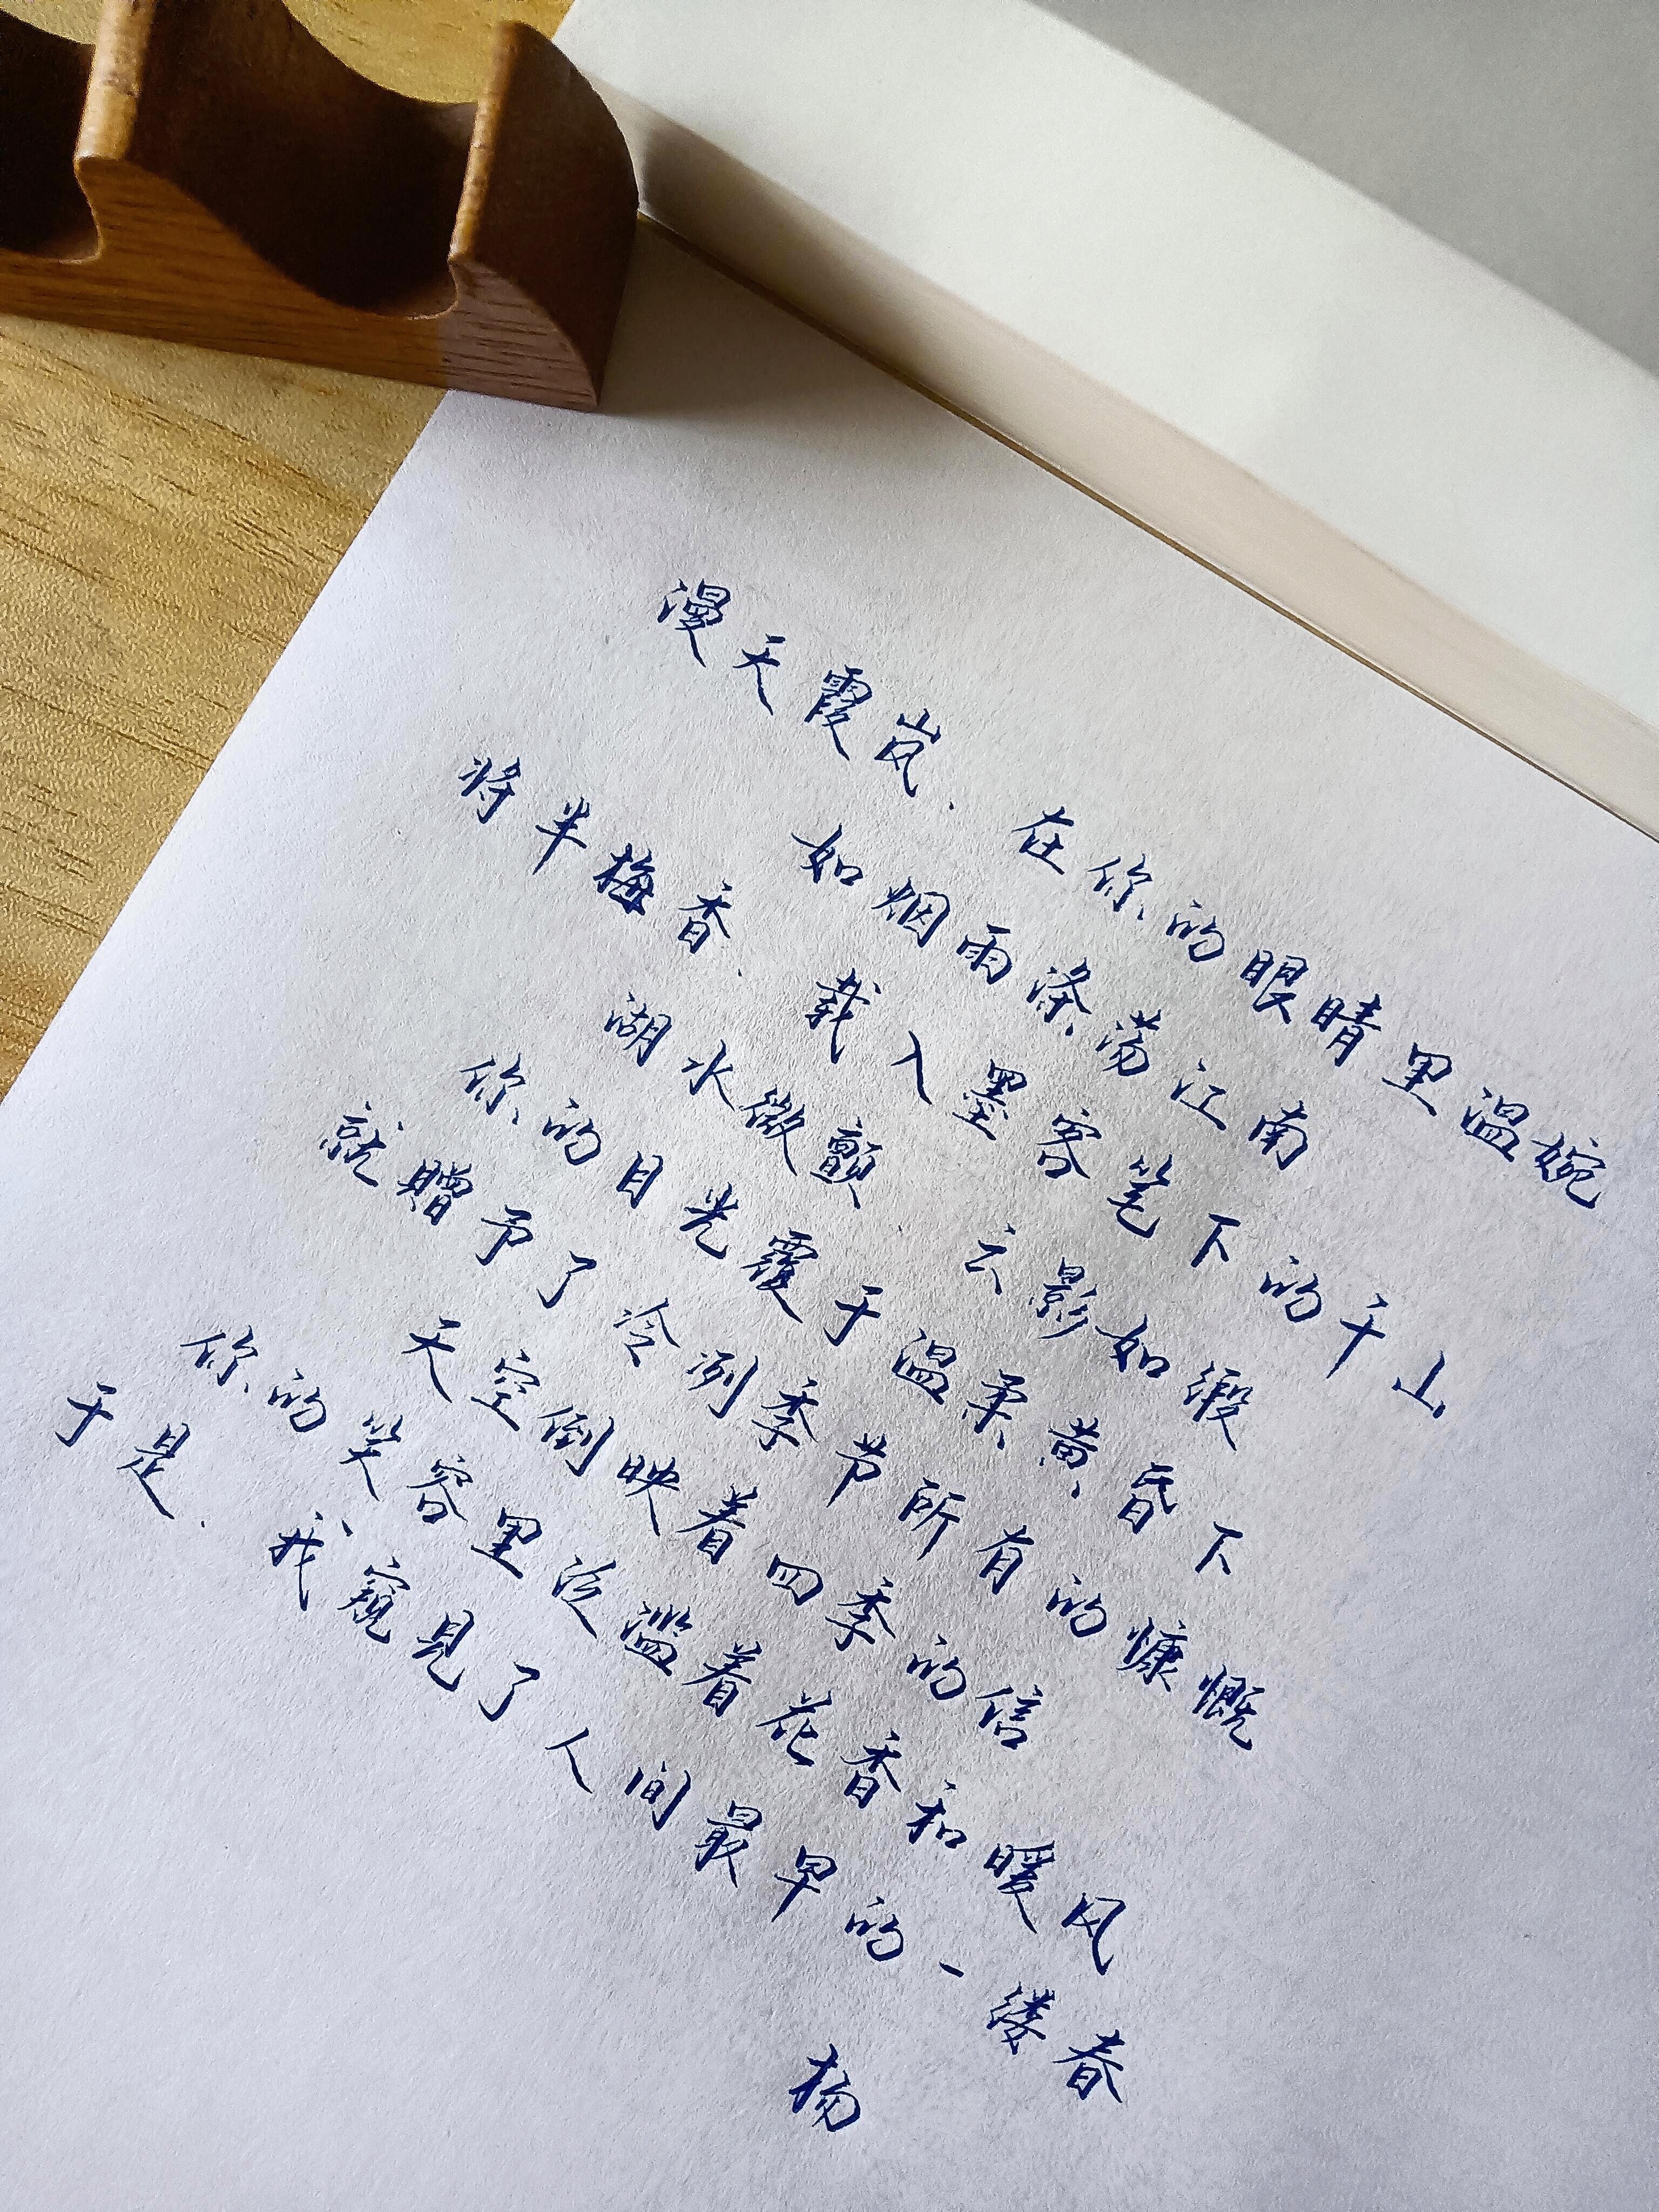 漫天霞岚、在你的眼睛里温婉
如烟雨涤荡江南
将半梅香、载入墨客笔下的千山
湖水微颤 云影如缎
你的目光覆于温柔黄昏下
就赠予了冷冽季节所有的慷慨
天空倒映着四季的信
你的笑容里泛滥着花香和暖风
于是、我窥见了人间最早的一缕春
杨